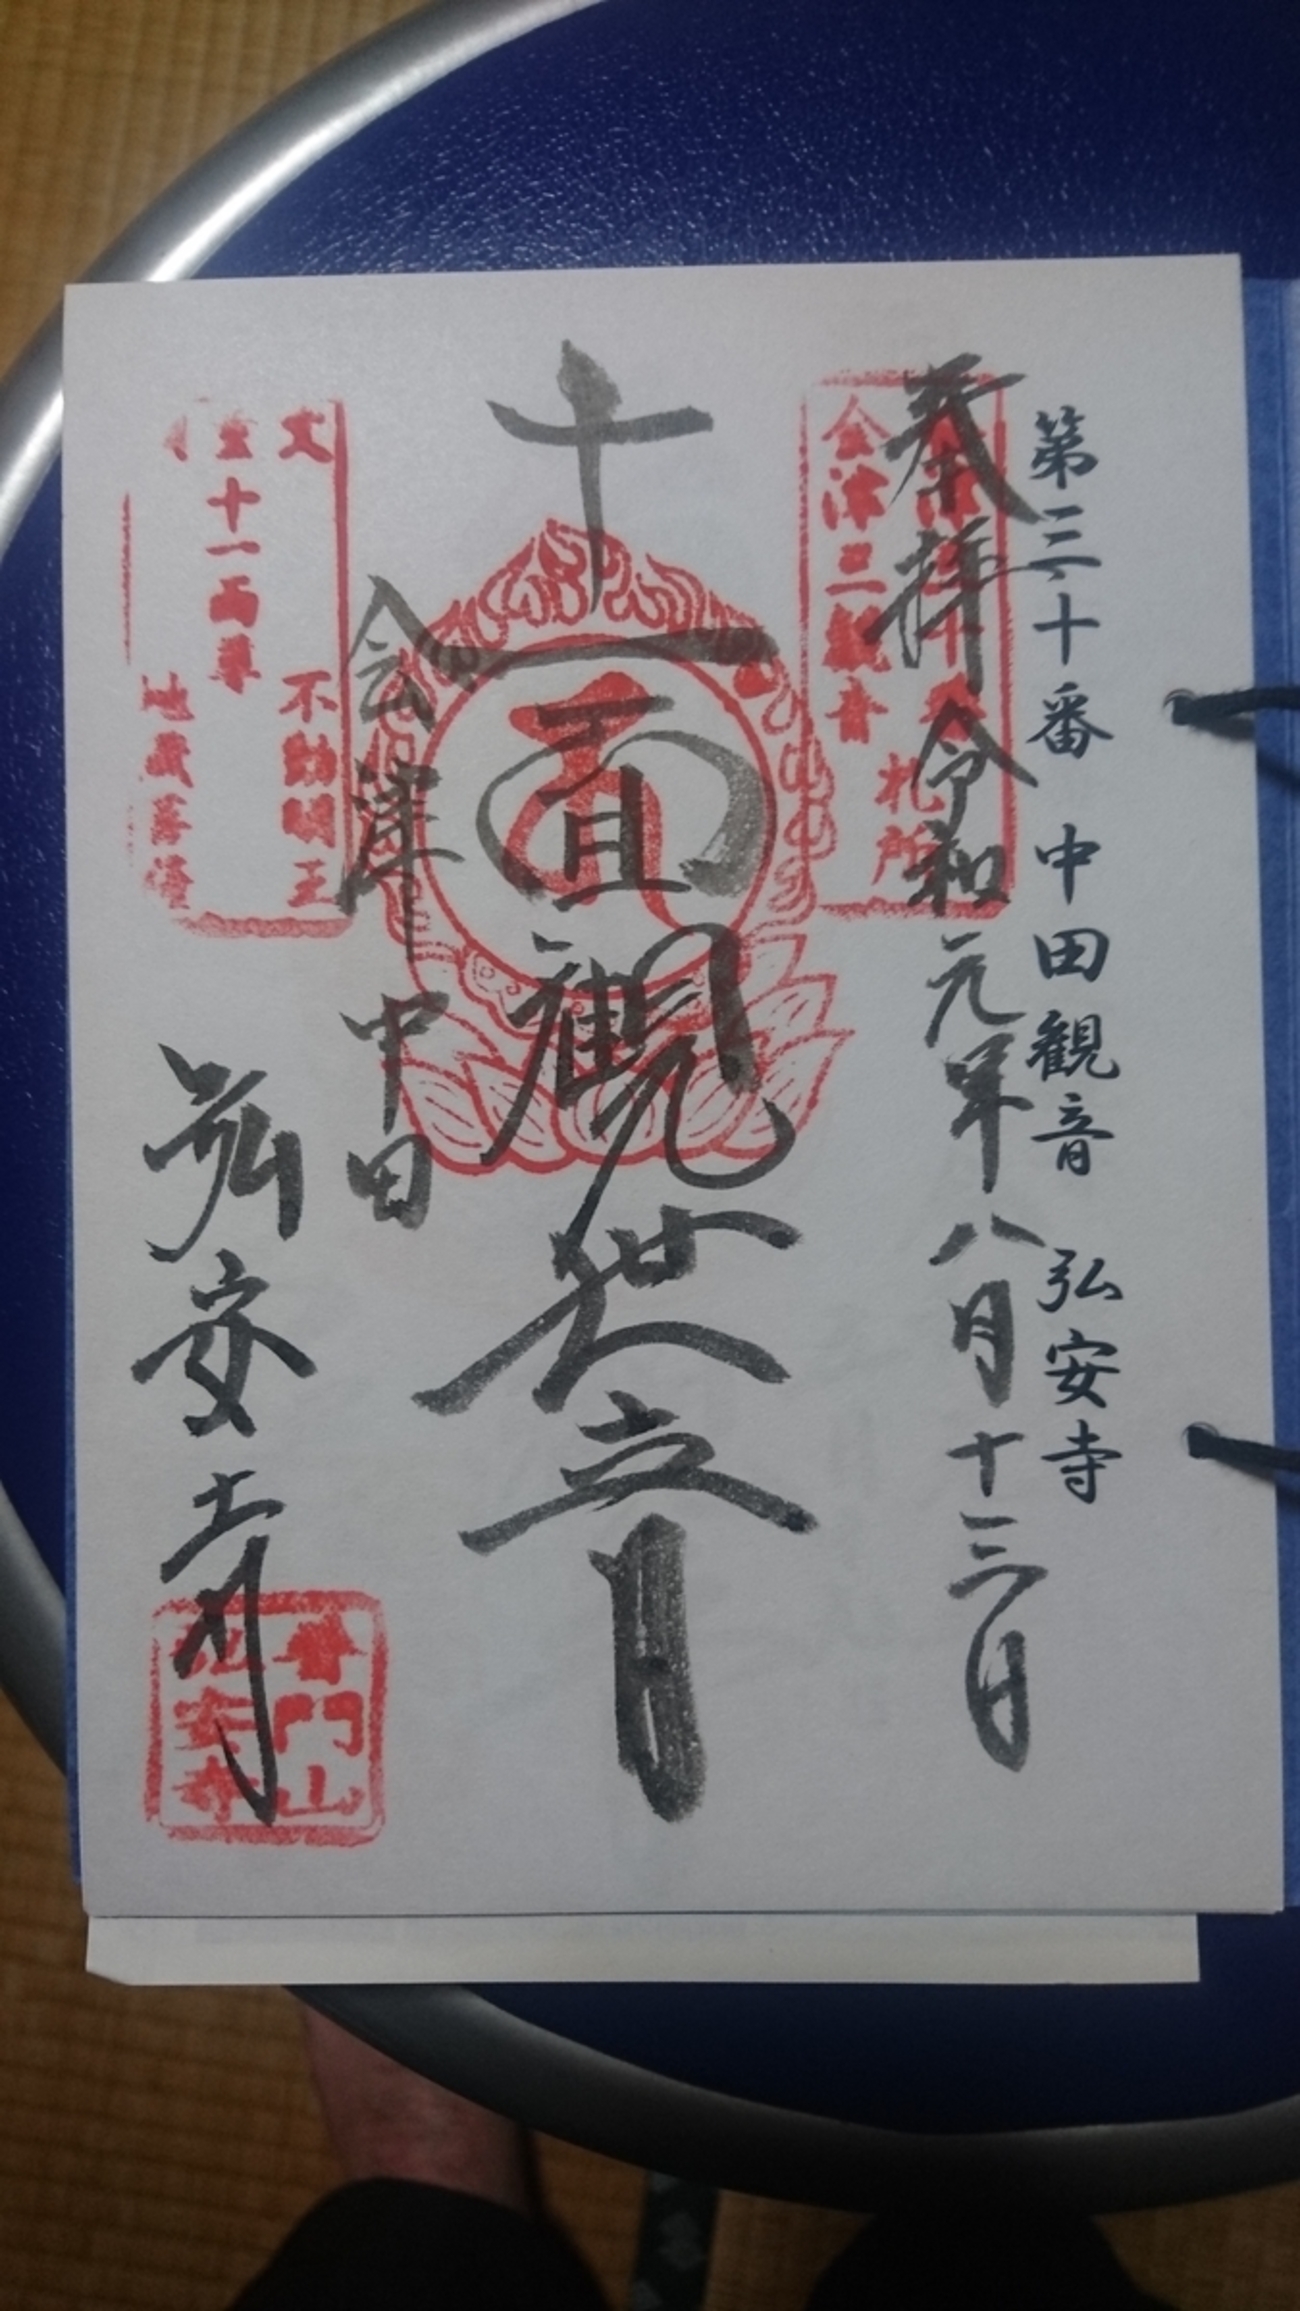 第三十番 中田観音 弘安寺
奉拝 令和元年八月十三日
会津三観音
札所
十一面観世音
会津 中田
不動明王
十一面尊
地蔵菩薩
弘安寺
普門山
弘安寺